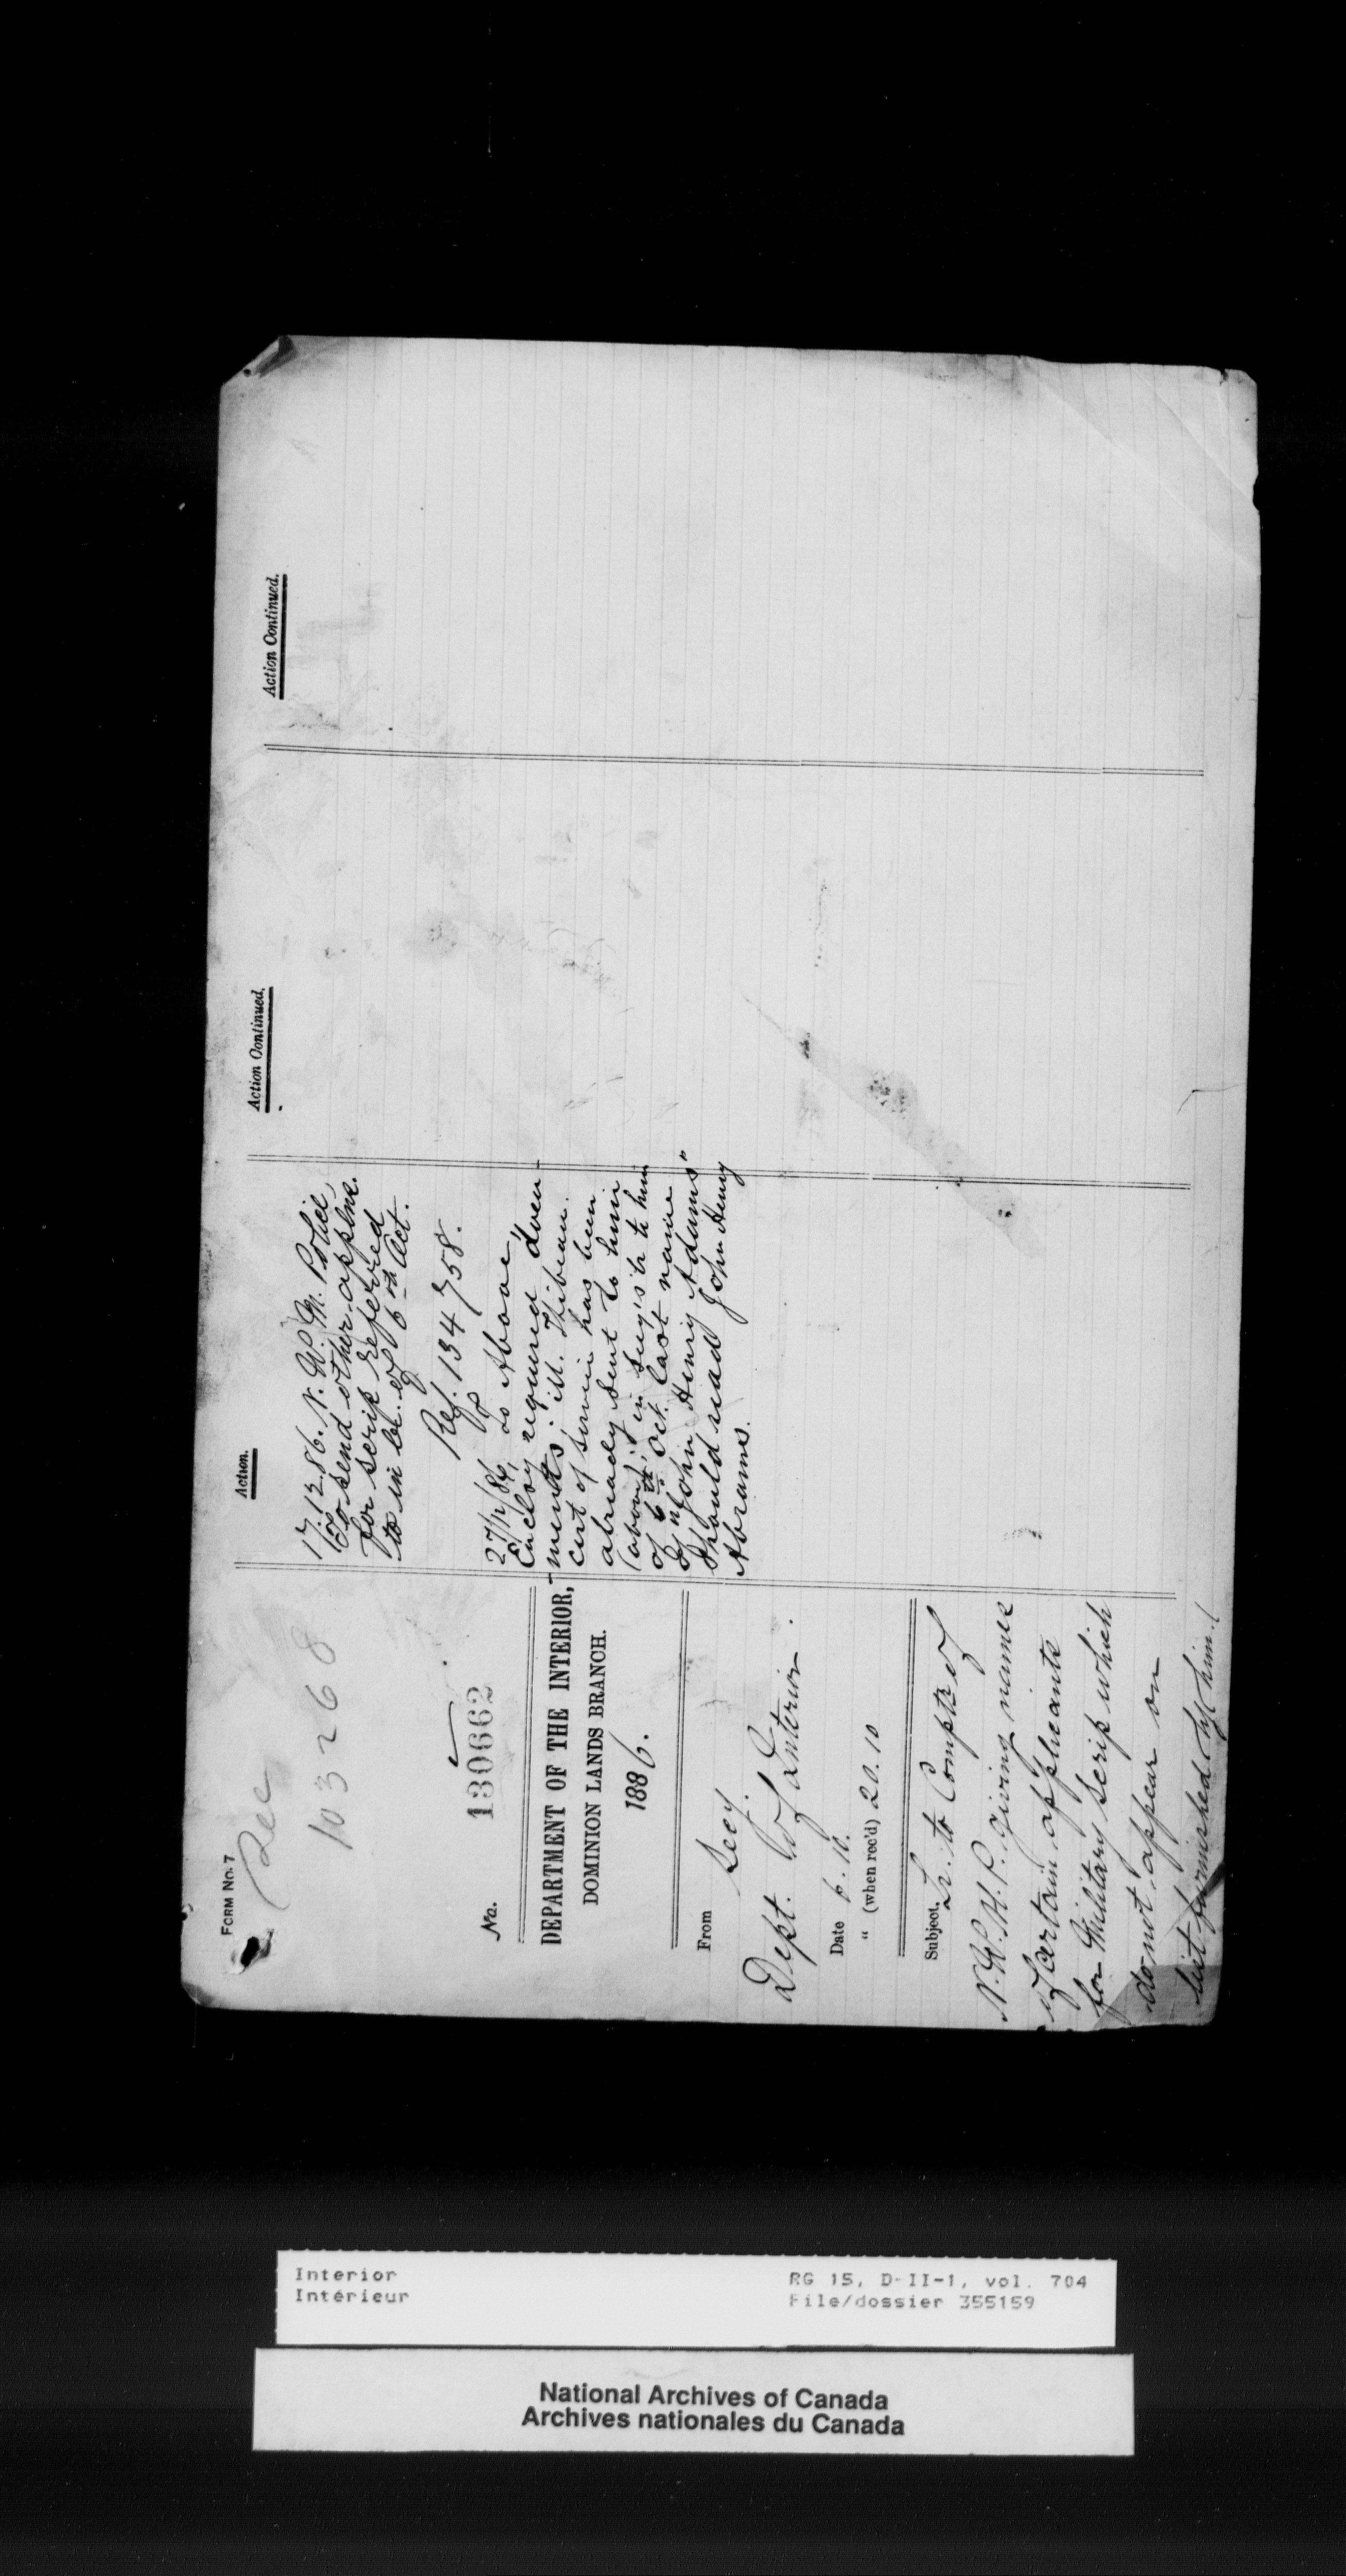 FORM No. 7
Rec
103268
No. 130662
DEPARTMENT OF THE INTERIOR,
DOMINION LANDS BRANCH.
1886.
From Secy.
Dept. of Interior.
Date 6.10.
" (when rec'd) 20.10
Subject. Lr. to Comptr of
N.W.M.P. giving names
of certain applicants
for Military Scrip which
do not appear on
list furnished by him.
Action.
17.12.86. N.W.M. Police,
To send other applns.
for scrip referred
to in lr. of 6th Oct.
Ref. 134758.
27/12/86, To Above,
Encloy required docu-
ments; M. Thibeau.
cert of service has been
already sent to him
(above); in Secy's lr to him
of 6th Oct. last name
of "John Henry Adams"
should read John Henry
Abrams.
Action Continued.
Action Continued.
Interior
Intérieur
RG 15, D-II-1, vol. 704
File/dossier 355159
National Archives of Canada
Archives nationales du Canada